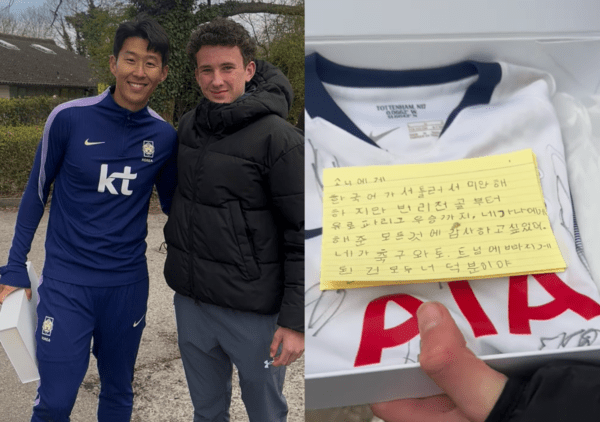 kt
소니에게
한국어가 서툴러서 미안해
하지만 번리전 골 부터
유로파리그 우승까지, 네가 나에게
해준 모든것에 감사하고 싶었어.
네가 축구와 토트넘에 빠지게
된 건 모두 너 덕분이야
AIA